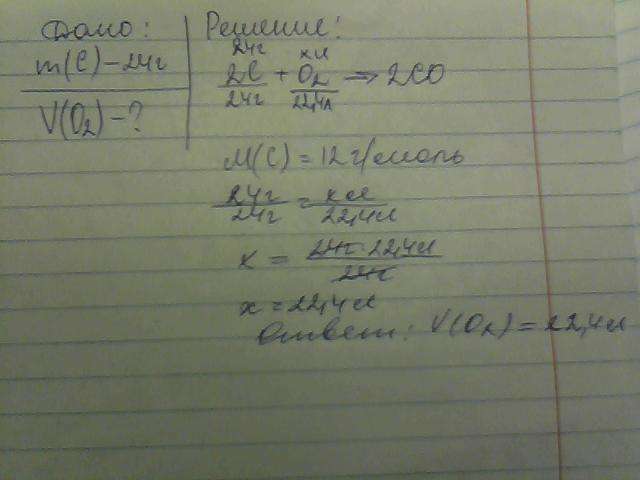 Дано:
m(C) - 24г
V(O₂) - ?
Решение:
24г хл
2C + O₂ => 2CO
24г 22,4л
M(C) = 12 г/моль
24г/24г = хл/22,4л
x = 24г · 22,4л/24г
x = 22,4л
Ответ: V(O₂) = 22,4л